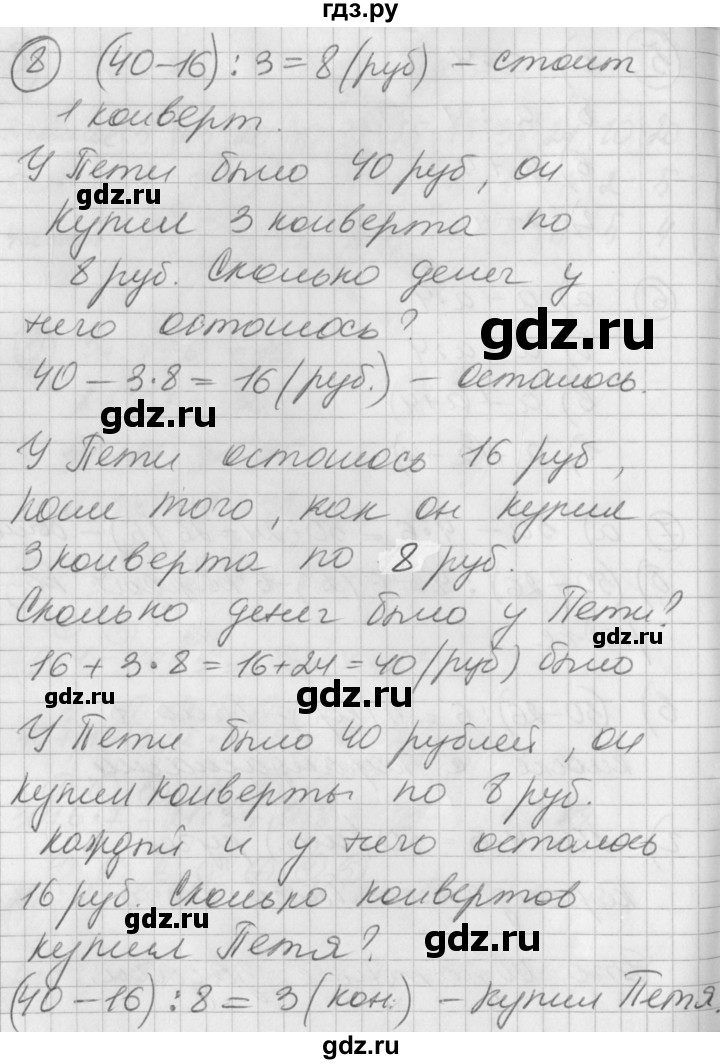 гдз.ру
8 (40-16) : 3 = 8 (руб) – стоит
1 конверт.
У Пети было 40 руб, он
gdz.ru
купил 3 конверта по
8 руб. Сколько денег у
него осталось?
gdz.ru
40 – 3·8 = 16 (руб.) – осталось.
gdz.ru
У Пети осталось 16 руб,
после того, как он купил
3 конверта по 8 руб.
Сколько денег было у Пети?
gdz.ru
16 + 3·8 = 16+24 = 40 (руб) было
gdz.ru
gdz.ru
У Пети было 40 рублей, он
купил конверты по 8 руб.
каждый и у него осталось
16 руб. Сколько конвертов
gdz.ru
купил Петя?
gdz.ru
(40 – 16) : 8 = 3 (кон.) – купил Петя.
гдз.ру